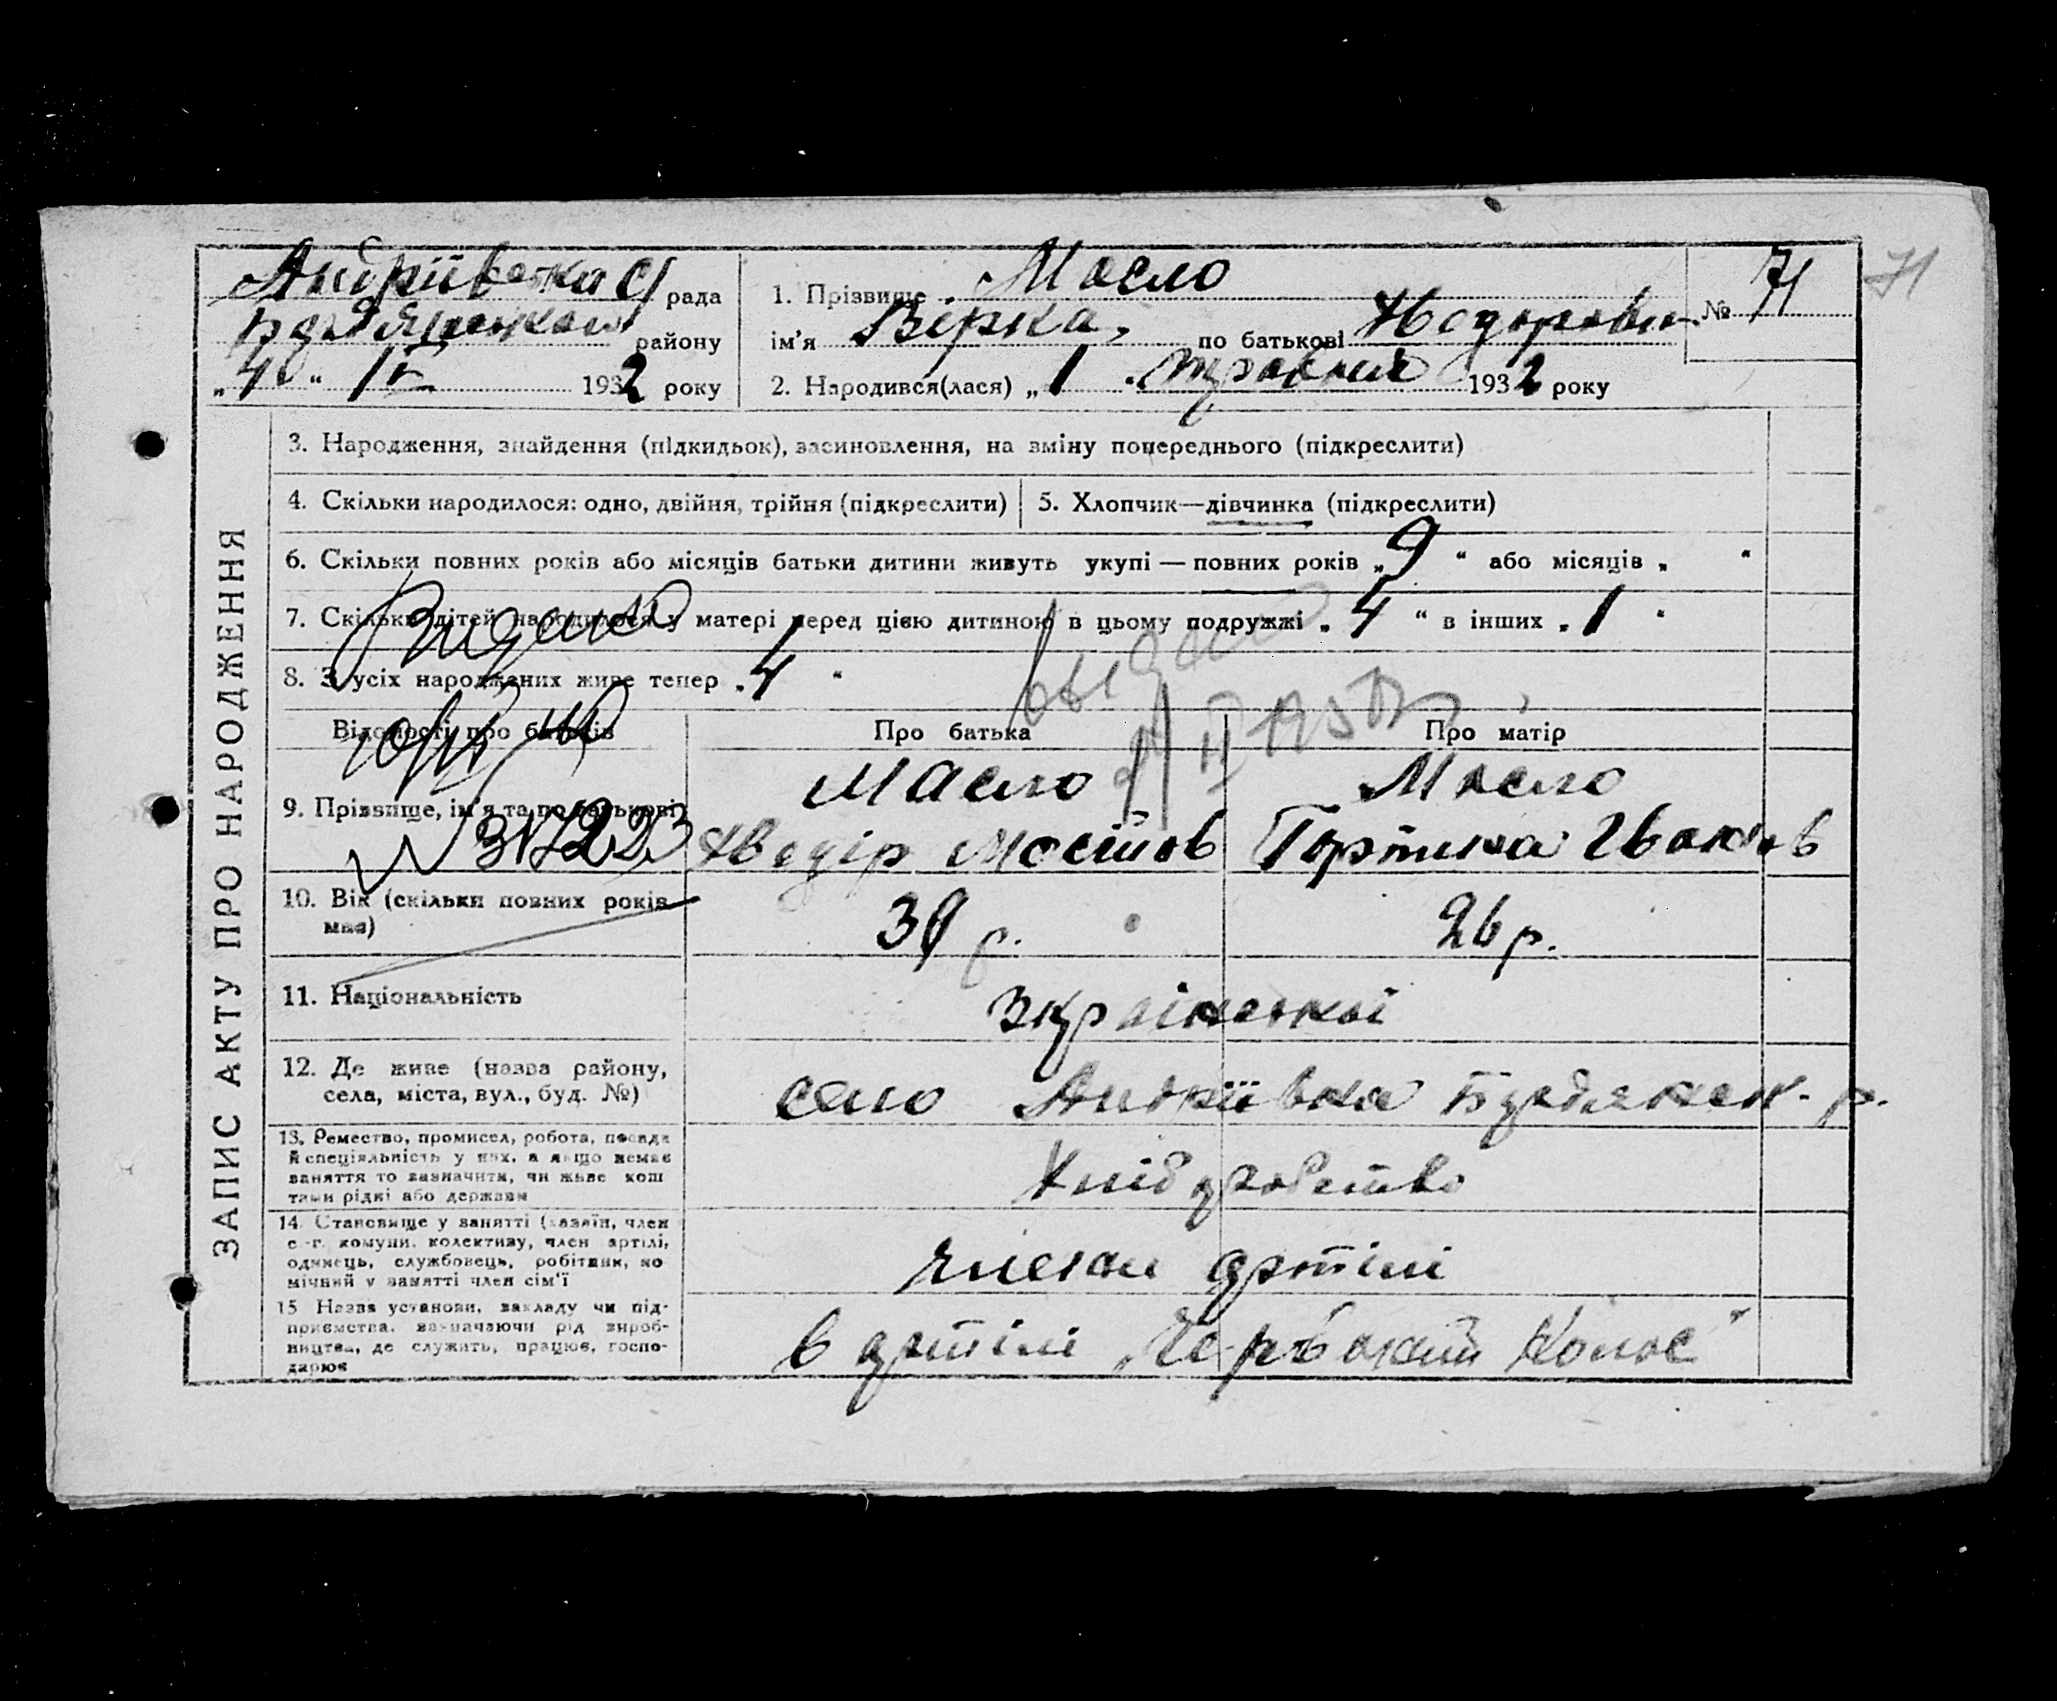 Андріївська с/рада
1. Прізвище Масло
№ 71
71
Бердянського району
ім'я Вірка, по батькові Хведоровн.
"4" 1932 року
2. Народився(лася) „1" травня 1932 року
ЗАПИС АКТУ ПРО НАРОДЖЕННЯ
3. Народження, знайдення (підкидьок), засиновлення, на зміну попереднього (підкреслити)
4. Скільки народилося: одно, двійня, трійня (підкреслити)
5. Хлопчик—дівчинка (підкреслити)
6. Скільки повних років або місяців батьки дитини живуть укупі — повних років „9" або місяців „ "
7. Скільки дітей народилося у матері перед цією дитиною в цьому подружжі „4" в інших „1"
8. З усіх народжених живе тепер „4"
Видано
выдано
Відомості про батьків
Про батька
Про матір
9. Прізвище, ім'я та по батькові
Масло
Масло
Хведір
Горпина Іванов
10. Вік (скільки повних років має)
39 р.
26 р.
11. Національність
Української
12. Де живе (назва району,
села, міста, вул., буд. №)
село Андріївка Бердянськ. р.
13. Ремество, промисел, робота, посада
й спеціяльність у них, а якщо немає
заняття то зазначити, чи живе кош
тами рідні або держави
Хліборобство
14. Становище у занятті (хазяїн, член
с.-г. комуни, колективу, член артілі,
одинець, службовець, робітник, по
мічний у занятті член сім'ї
член артілі
15 Назва установи, закладу чи під-
приємства, зазначаючи рід вироб-
ництва, де служить, працює, госпо-
дарює
в артілі „Червоний Колос"